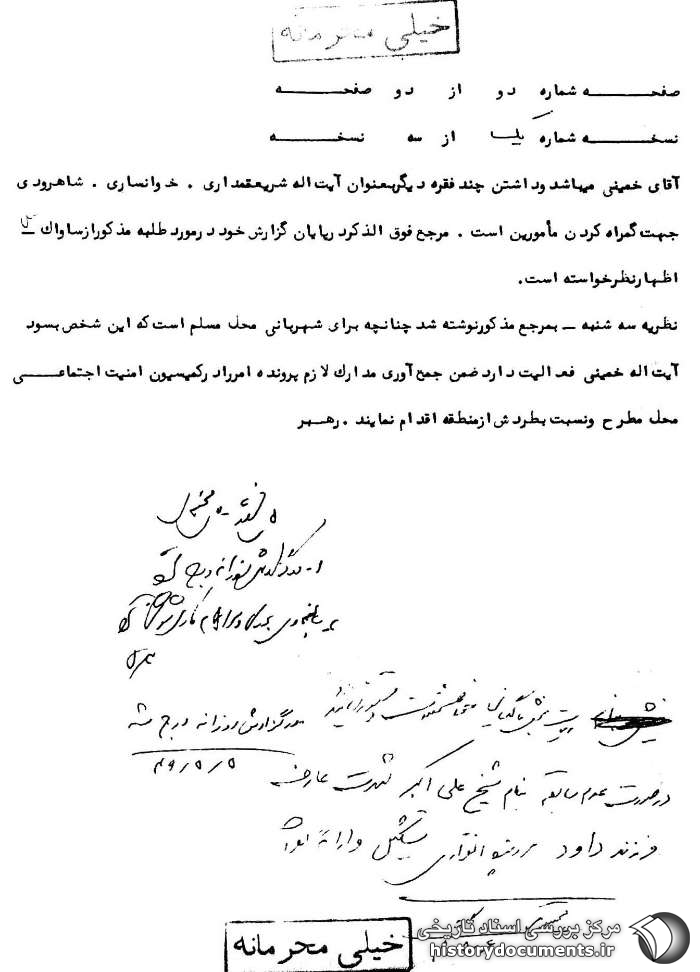 خیلی محرمانه
صفحه شماره دو از دو صفحه
نسخه شماره یک از سه نسخه
آقای خمینی میباشد وداشتن چند فقره دیگربعنوان آیت اله شریعتمداری . خوانساری . شاهرودی
جهت گمراه کردن مأمورین است . مرجع فوق الذکردرپایان گزارش خود درمورد طلبه مذکورازساواک
اظهارنظرخواسته است.
نظریه سه شنبه ـ بمرجع مذکورنوشته شد چنانچه برای شهربانی محل مسلم است که این شخص بسود
آیت اله خمینی فعالیت دارد ضمن جمع آوری مدارک لازم پرونده امررادرکمیسیون امنیت اجتماعی
محل مطرح ونسبت بطردش ازمنطقه اقدام نمایند .رهبر
در گزارش روزانه درج شد
۴۹/۵/۵
درصورت عدم سابقه بنام شیخ علی اکبر شهرت عارف
فرزند داود پرونده انفرادی تشکیل و ارائه
مرکز بررسی اسناد تاریخی
historydocuments.ir
خیلی محرمانه